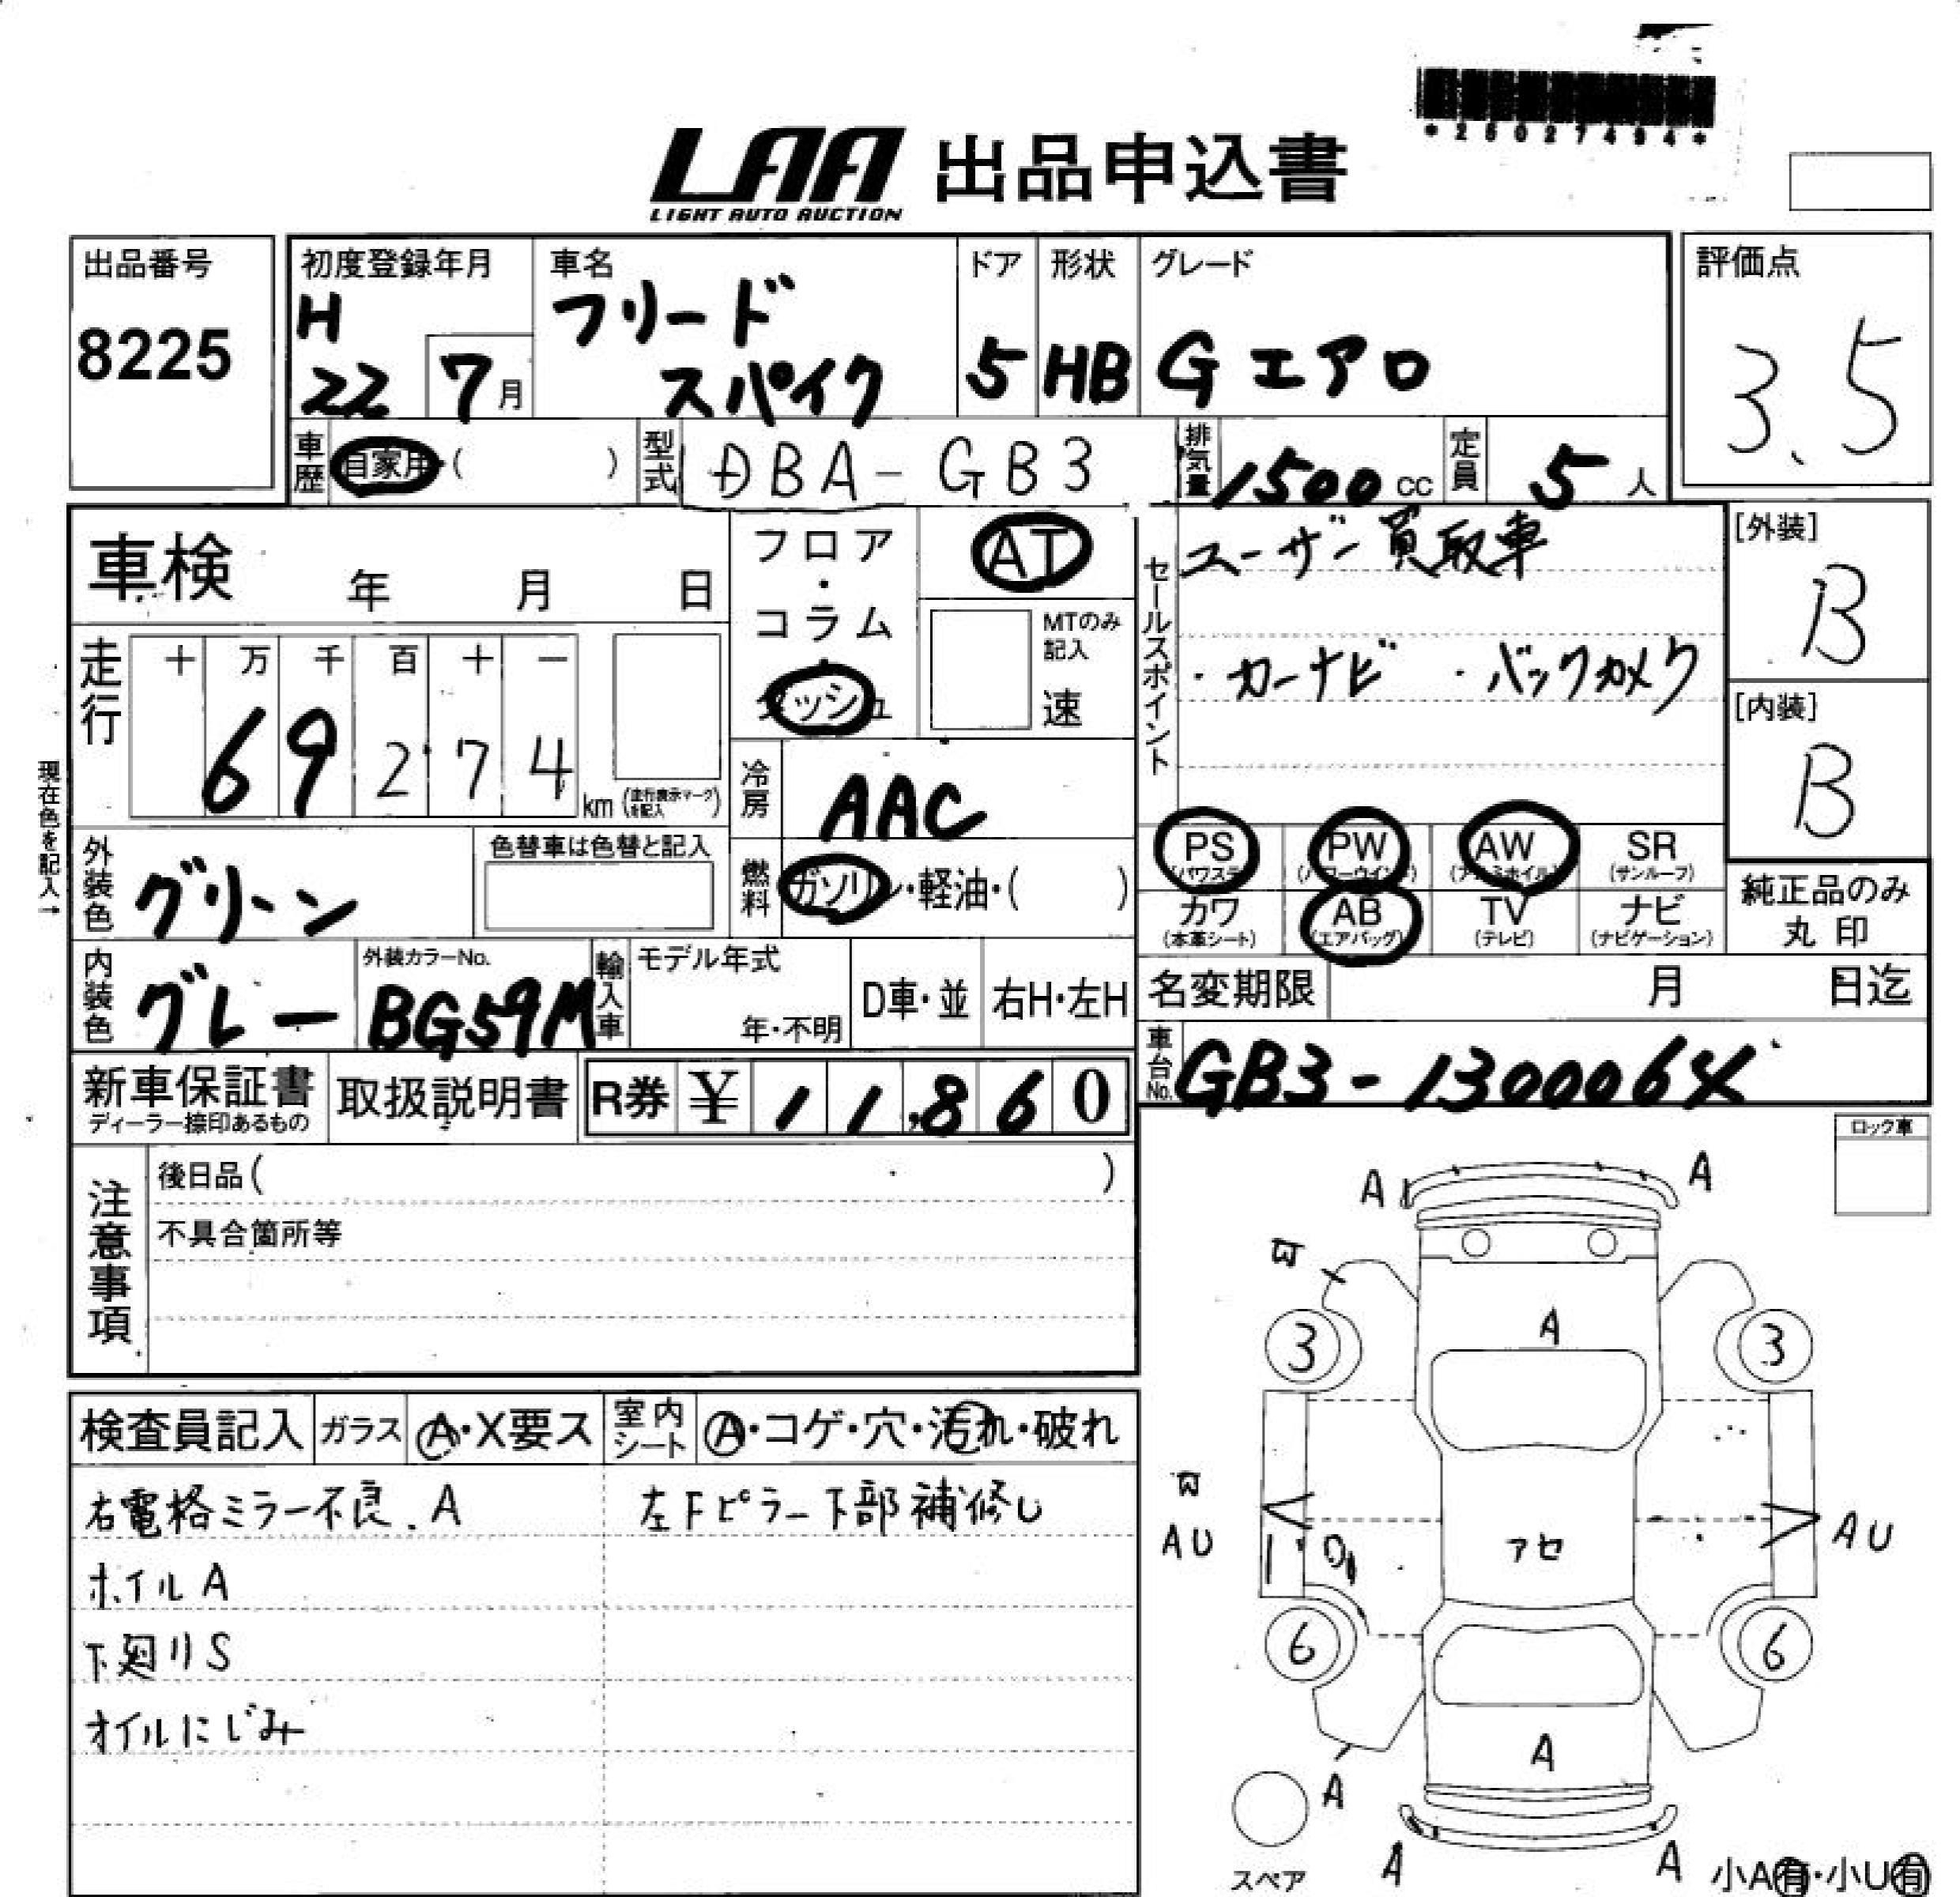 *25027494*
LAA 出品申込書
LIGHT AUTO AUCTION
出品番号
8225
初度登録年月
H
22 7月
車名
フリード
スパイク
ドア
5
形状
HB
グレード
G エアロ
評価点
3.5
車歴 自家用・( )
型式 DBA-GB3
排気量 1500 cc
定員 5 人
車検 年 月 日
フロア・コラム・ダッシュ
AT
MTのみ記入
速
走行
十 万 千 百 十 一
6 9 2 7 4 km (走行表示マークを記入)
冷房 AAC
現在色を記入→
外装色 グリーン
色替車は色替と記入
燃料 ガソリン・軽油・( )
内装色 グレー
外装カラーNo.
BG59M
輸入車
モデル年式
年・不明
D車・並
右H・左H
新車保証書
ディーラー捺印あるもの
取扱説明書
R券 ¥ 11,860
セールスポイント
ユーザー買取車
・カーナビ ・バックカメラ
[外装]
B
[内装]
B
PS (パワステ)
PW (パワーウインド)
AW (アルミホイル)
SR (サンルーフ)
カワ (本革シート)
AB (エアバッグ)
TV (テレビ)
ナビ (ナビゲーション)
純正品のみ
丸 印
名変期限 月 日迄
車台No. GB3-130006
ロック車
注意事項
後日品( )
不具合箇所等
検査員記入
ガラス A・X要ス
室内シート A・コゲ・穴・汚れ・破れ
右電格ミラー不良.A
左Fピラー下部補修し
ホイルA
下廻りS
オイルにじみ
A A
3 A 3
AU アセ AU
6 6
A
A
A A
スペア
小A有・小U有